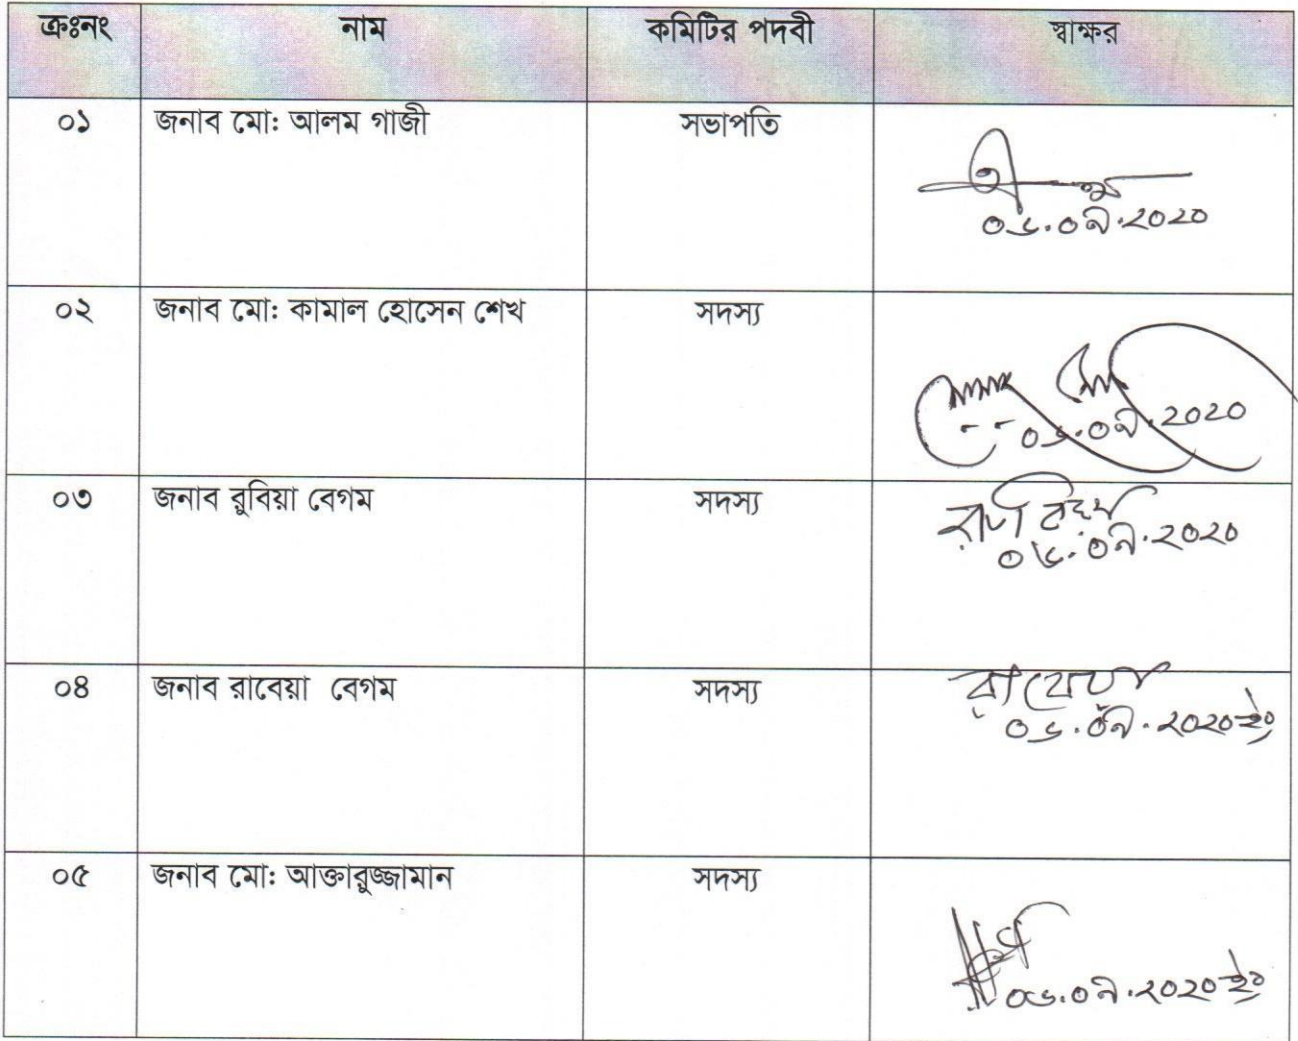 ক্রঃনং নাম কমিটির পদবী স্বাক্ষর
০১ জনাব মো: আলম গাজী সভাপতি
০৬.০৯.২০২০
০২ জনাব মো: কামাল হোসেন শেখ সদস্য
০৬.০৯.২০২০
০৩ জনাব রুবিয়া বেগম সদস্য
০৬.০৯.২০২০
০৪ জনাব রাবেয়া বেগম সদস্য
০৬.০৯.২০২০ইং
০৫ জনাব মো: আক্তারুজ্জামান সদস্য
০৬.০৯.২০২০ইং